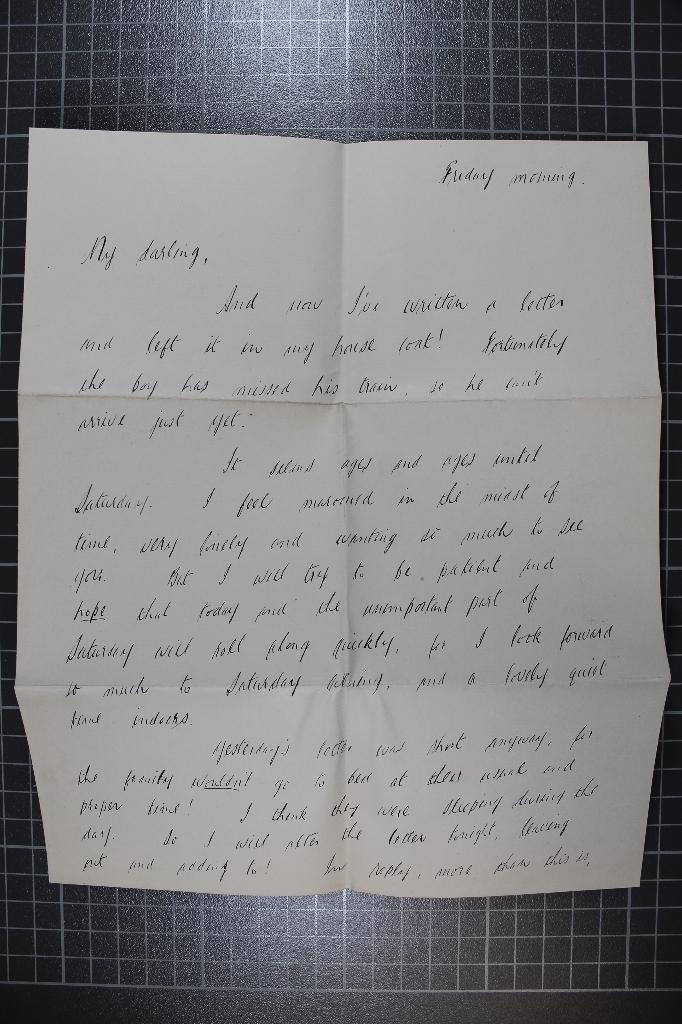 Friday morning.
My darling,
And now I've written a letter
and left it in my house coat! Fortunately
the boy has missed his train, so he can't
arrive just yet.
It seems ages and ages until
Saturday. I feel marooned in the midst of
time, very lonely and wanting so much to see
you. But I will try to be patient and
hope that today and the unimportant part of
Saturday will roll along quickly, for I look forward
so much to Saturday evening, and a lovely quiet
time indoors.
Yesterday's letter was short anyway, for
the family wouldn't go to bed at their usual and
proper time! I think they were sleeping during the
day. So I will alter the letter tonight, leaving
out and adding to! In reply, more than this is,